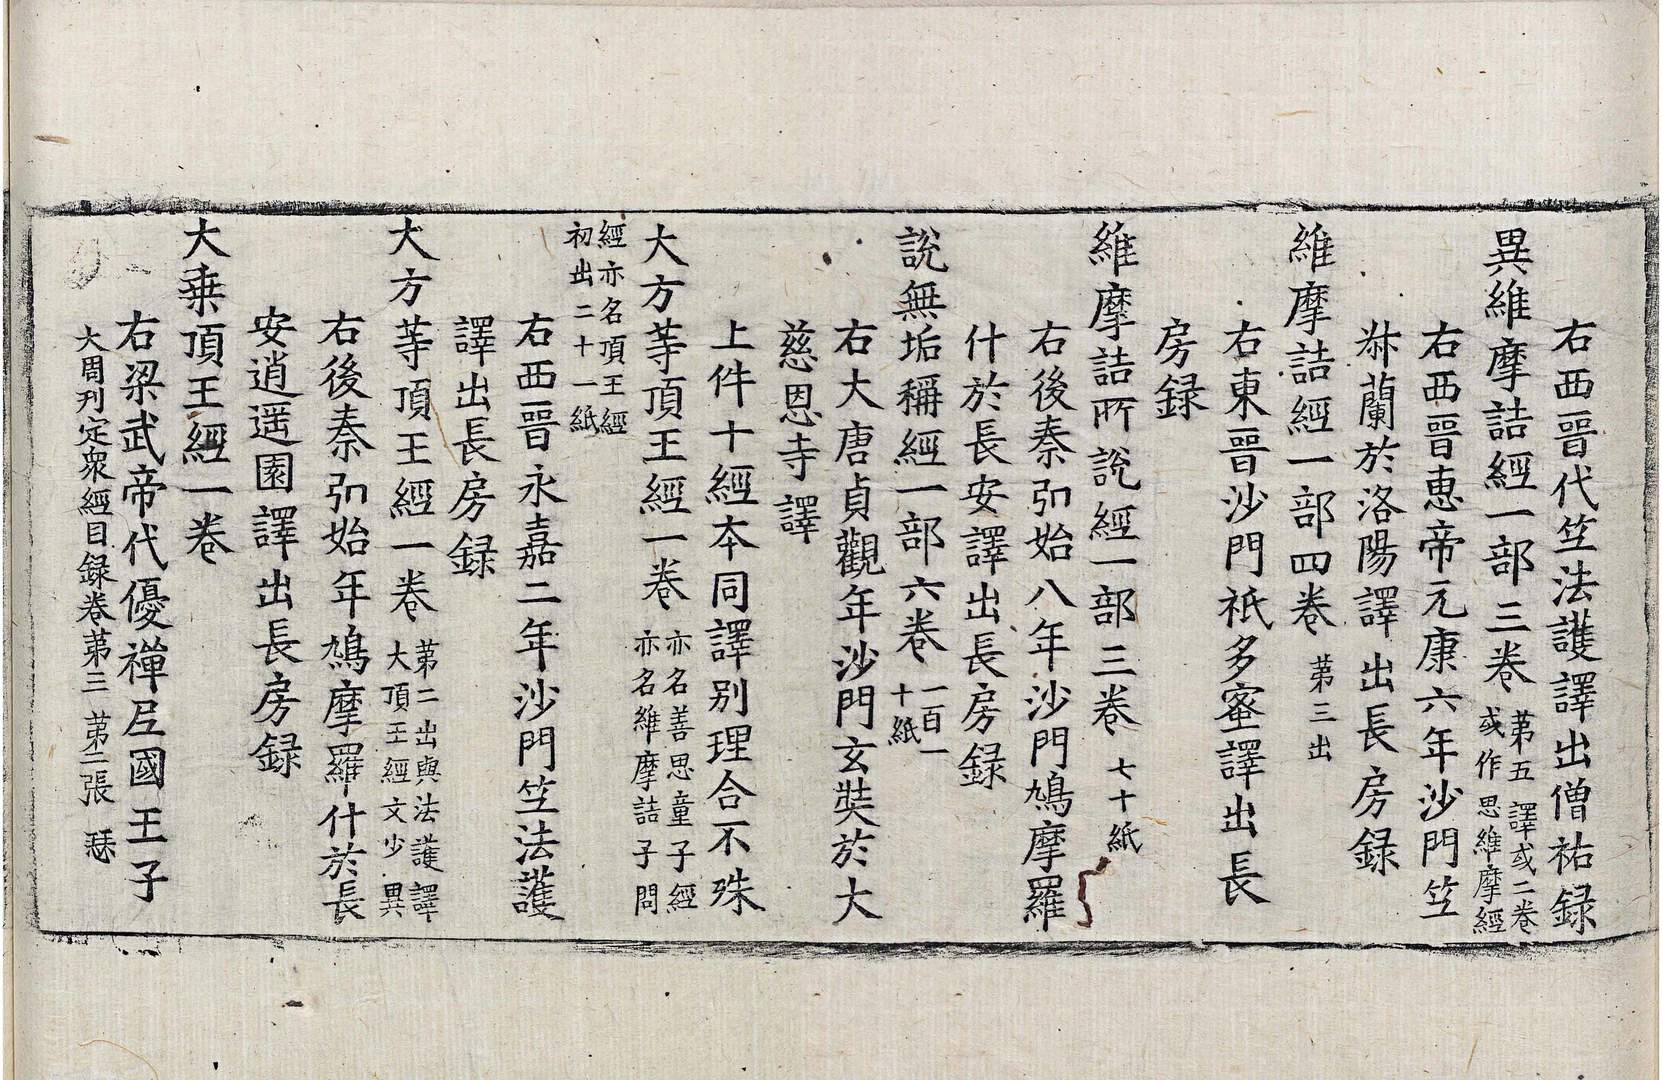 右西晉代竺法護譯出僧祐錄
異維摩詰經一部三卷 第五譯或二卷
或作思維摩經
右西晉惠帝元康六年沙門竺
叔蘭於洛陽譯出長房錄
維摩詰經一部四卷 第三出
右東晉沙門祇多蜜譯出長
房錄
維摩詰所說經一部三卷 七十紙
右後秦弘始八年沙門鳩摩羅
什於長安譯出長房錄
說無垢稱經一部六卷 一百一
十紙
右大唐貞觀年沙門玄奘於大
慈恩寺譯
上件十經本同譯別理合不殊
大方等頂王經一卷 亦名善思童子經
亦名維摩詰子問
經亦名頂王經
初出二十一紙
右西晉永嘉二年沙門竺法護
譯出長房錄
大方等頂王經一卷 第二出與法護譯
大頂王經文少異
右後秦弘始年鳩摩羅什於長
安逍遥園譯出長房錄
大乗頂王經一卷
右梁武帝代優禪尼國王子
大周刊定衆經目錄卷第三 第二張